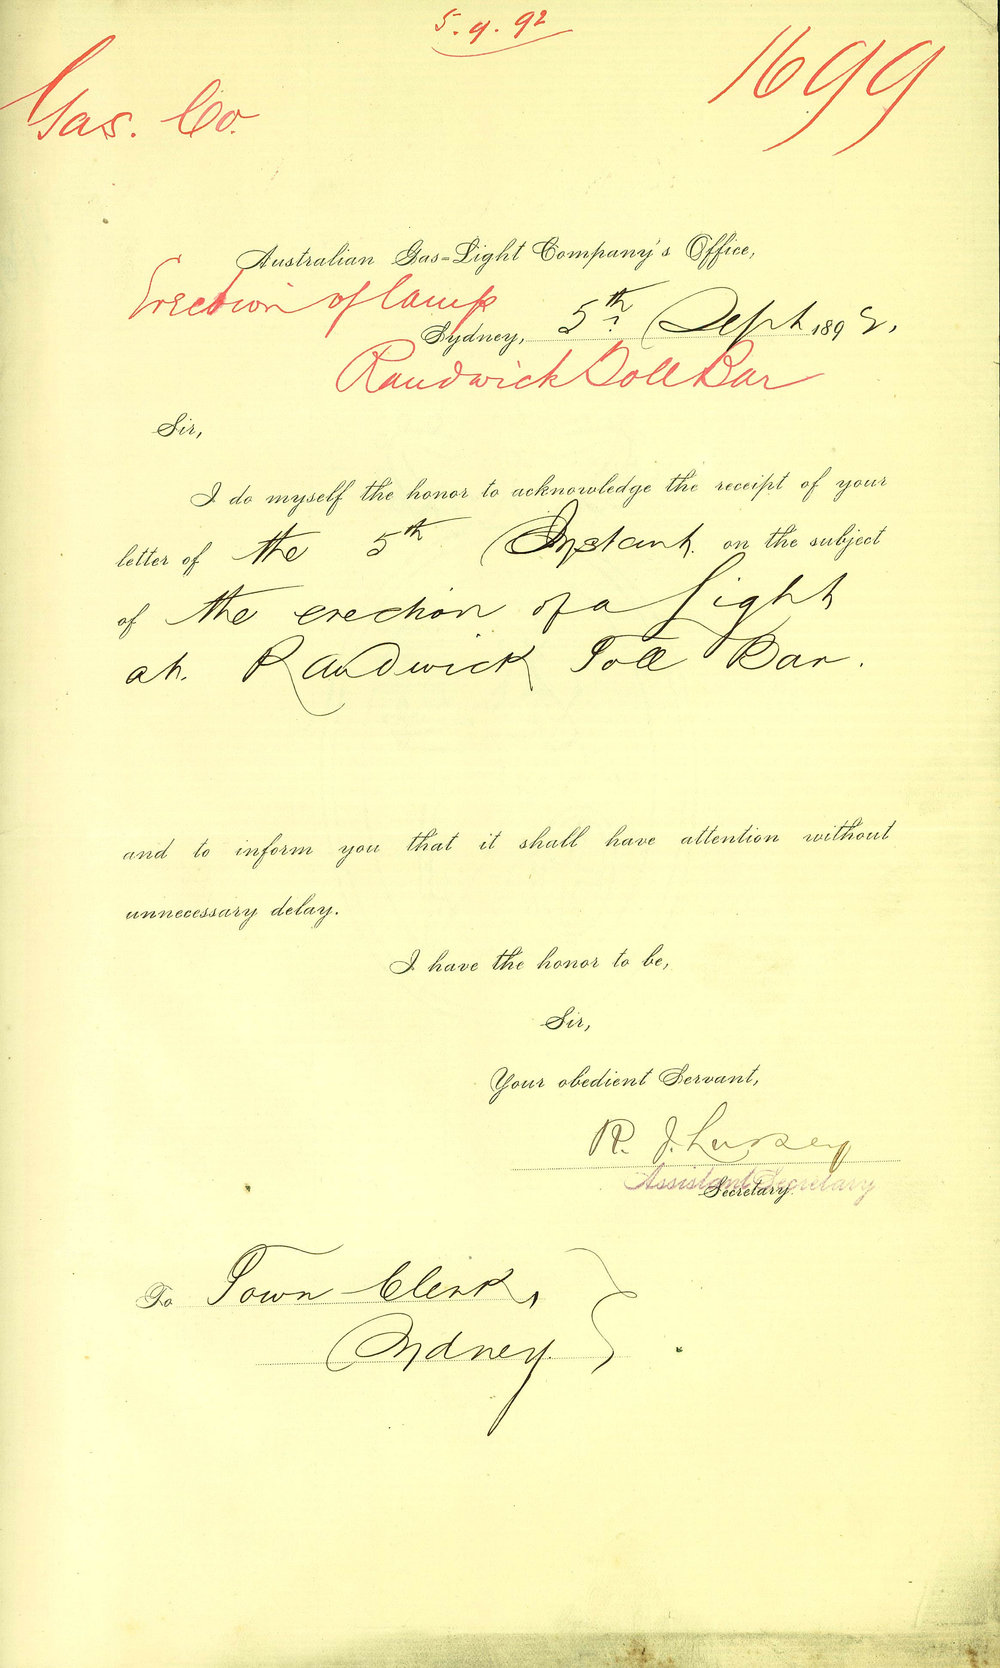 5.9.92
1699
Gas. Co.
Australian Gas-Light Company's Office,
Erection of lamp
Sydney, 5th Sept 1892.
Randwick Toll Bar
Sir,
I do myself the honor to acknowledge the receipt of your
letter of the 5th Instant. on the subject
of the erection of a Light
at. Randwick Toll Bar.
and to inform you that it shall have attention without
unnecessary delay.
I have the honor to be,
Sir,
Your obedient Servant,
R. J.
Assistant Secretary
Secretary.
To Town Clerk,
Sydney